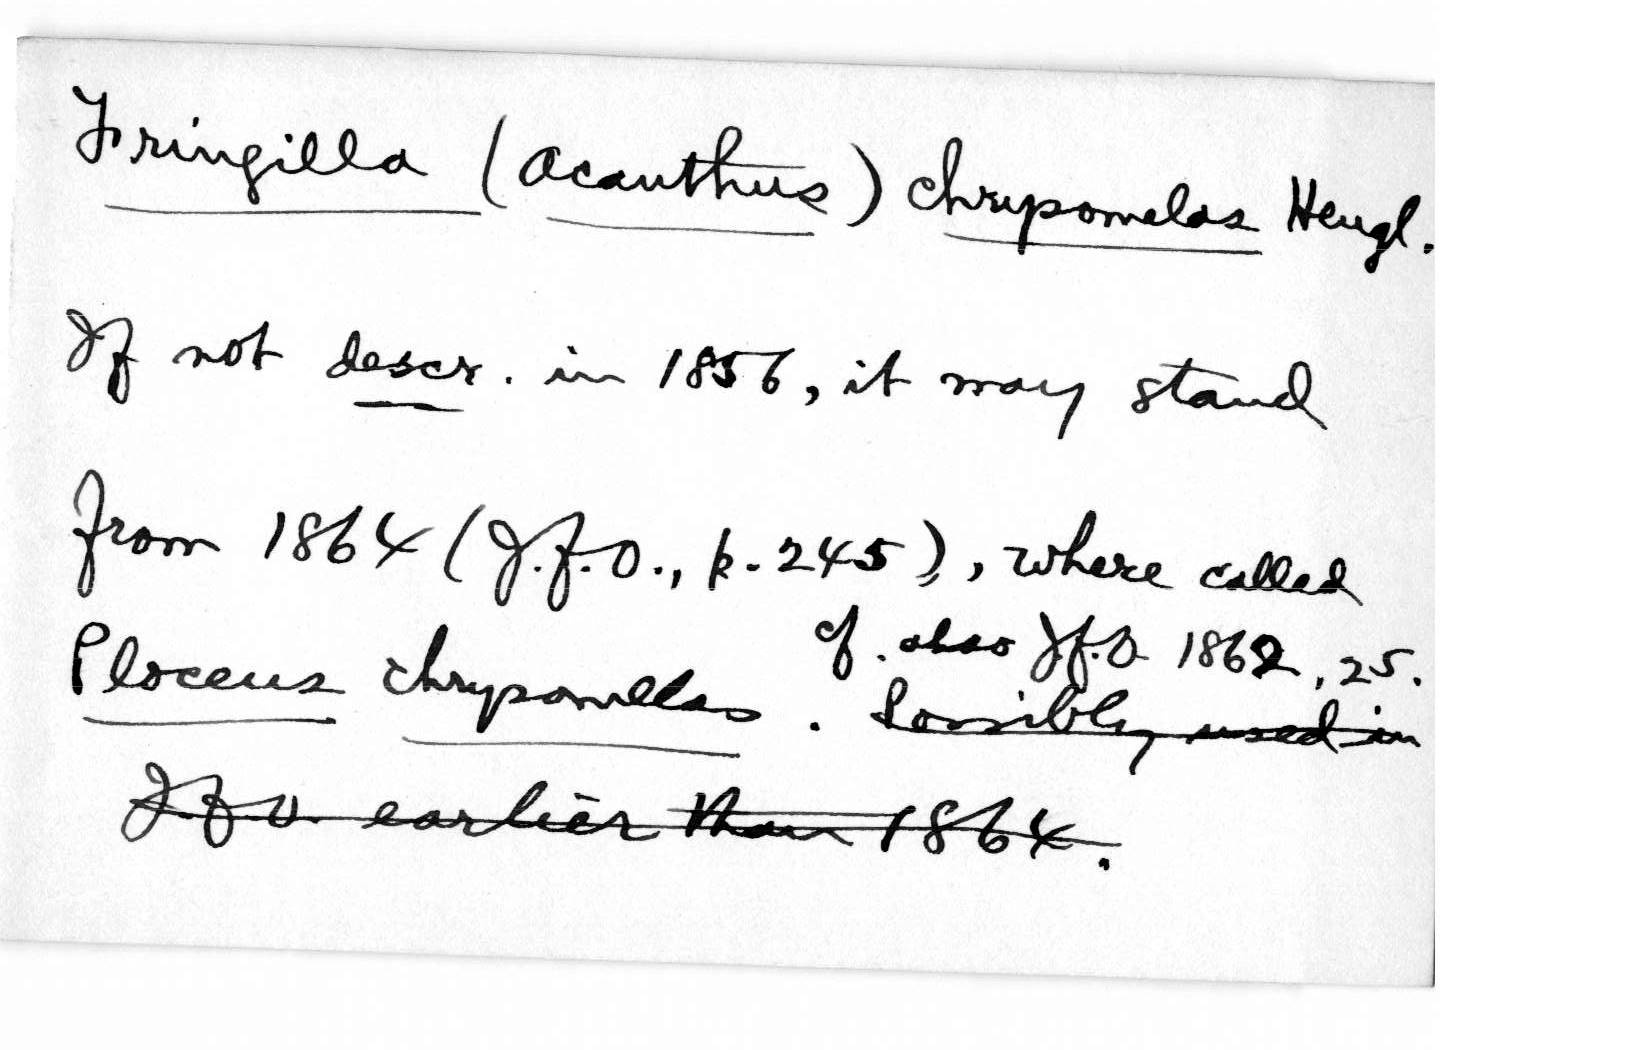 Fringilla (acanthus) chrysomelas Heugl.
If not descr. in 1856, it may stand
from 1864 (J.f.O., p. 245), where called
cf. also J.f.O 1862, 25.
Ploceus chrysomelas. Possibly used in
J.f.O. earlier than 1864.